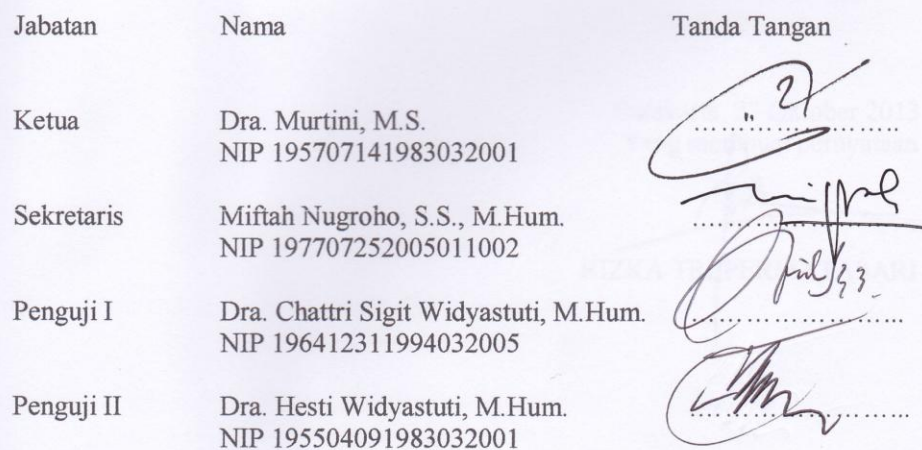 Jabatan Nama Tanda Tangan
Ketua Dra. Murtini, M.S.
NIP 195707141983032001
Sekretaris Miftah Nugroho, S.S., M.Hum.
NIP 197707252005011002
Penguji I Dra. Chattri Sigit Widyastuti, M.Hum.
NIP 196412311994032005
Penguji II Dra. Hesti Widyastuti, M.Hum.
NIP 195504091983032001